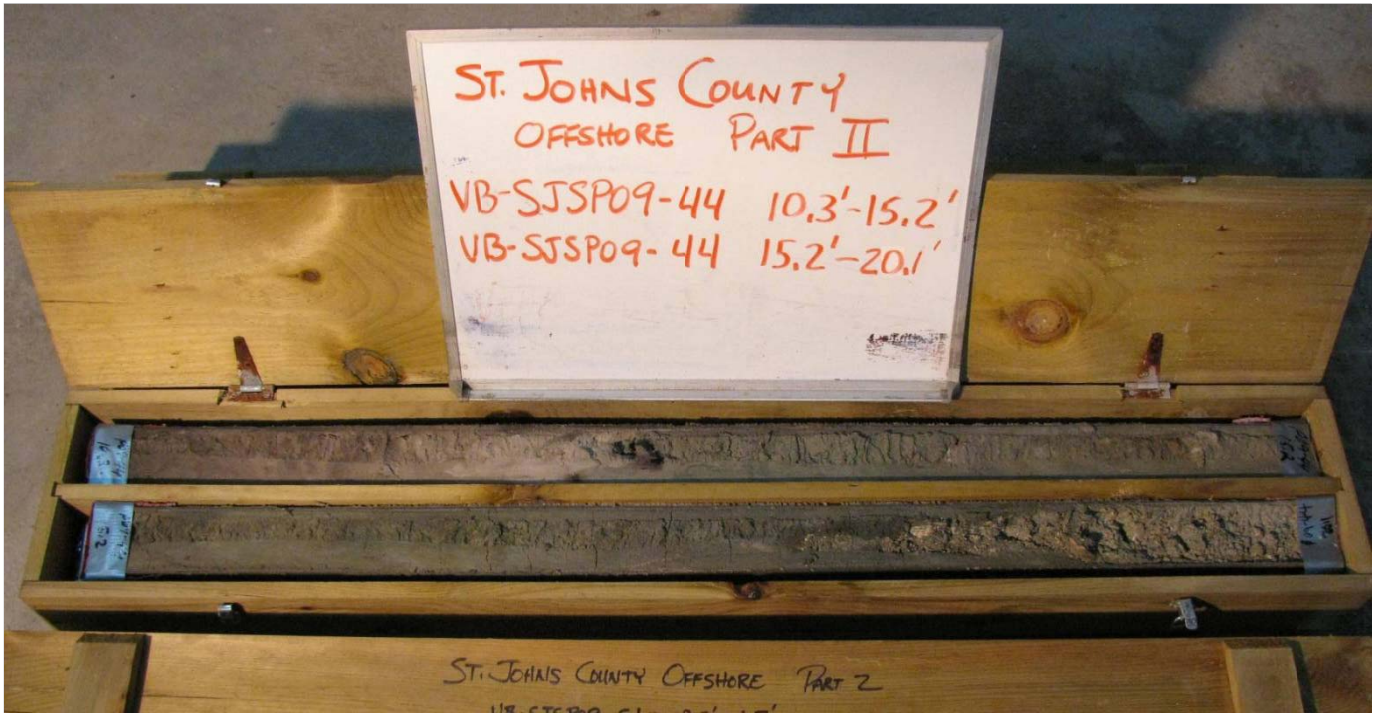 ST. JOHNS COUNTY
OFFSHORE PART II
VB-SJSP09-44 10.3'-15.2'
VB-SJSP09-44 15.2'-20.1'
ST. JOHNS COUNTY OFFSHORE PART 2